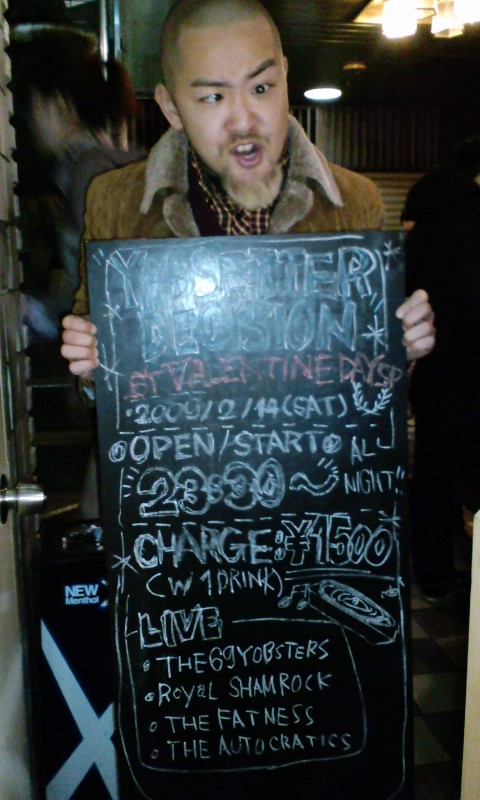 DECISION
ST VALENTINE DAY SP
2009/2/14(SAT)
OPEN/START
ALL
NIGHT!!
23:30〜
CHARGE:¥1500
(W 1DRINK)
LIVE
THE69YOBSTERS
ROYAL SHAMROCK
THE FATNESS
THE AUTOCRATICS
NEW
Menthol